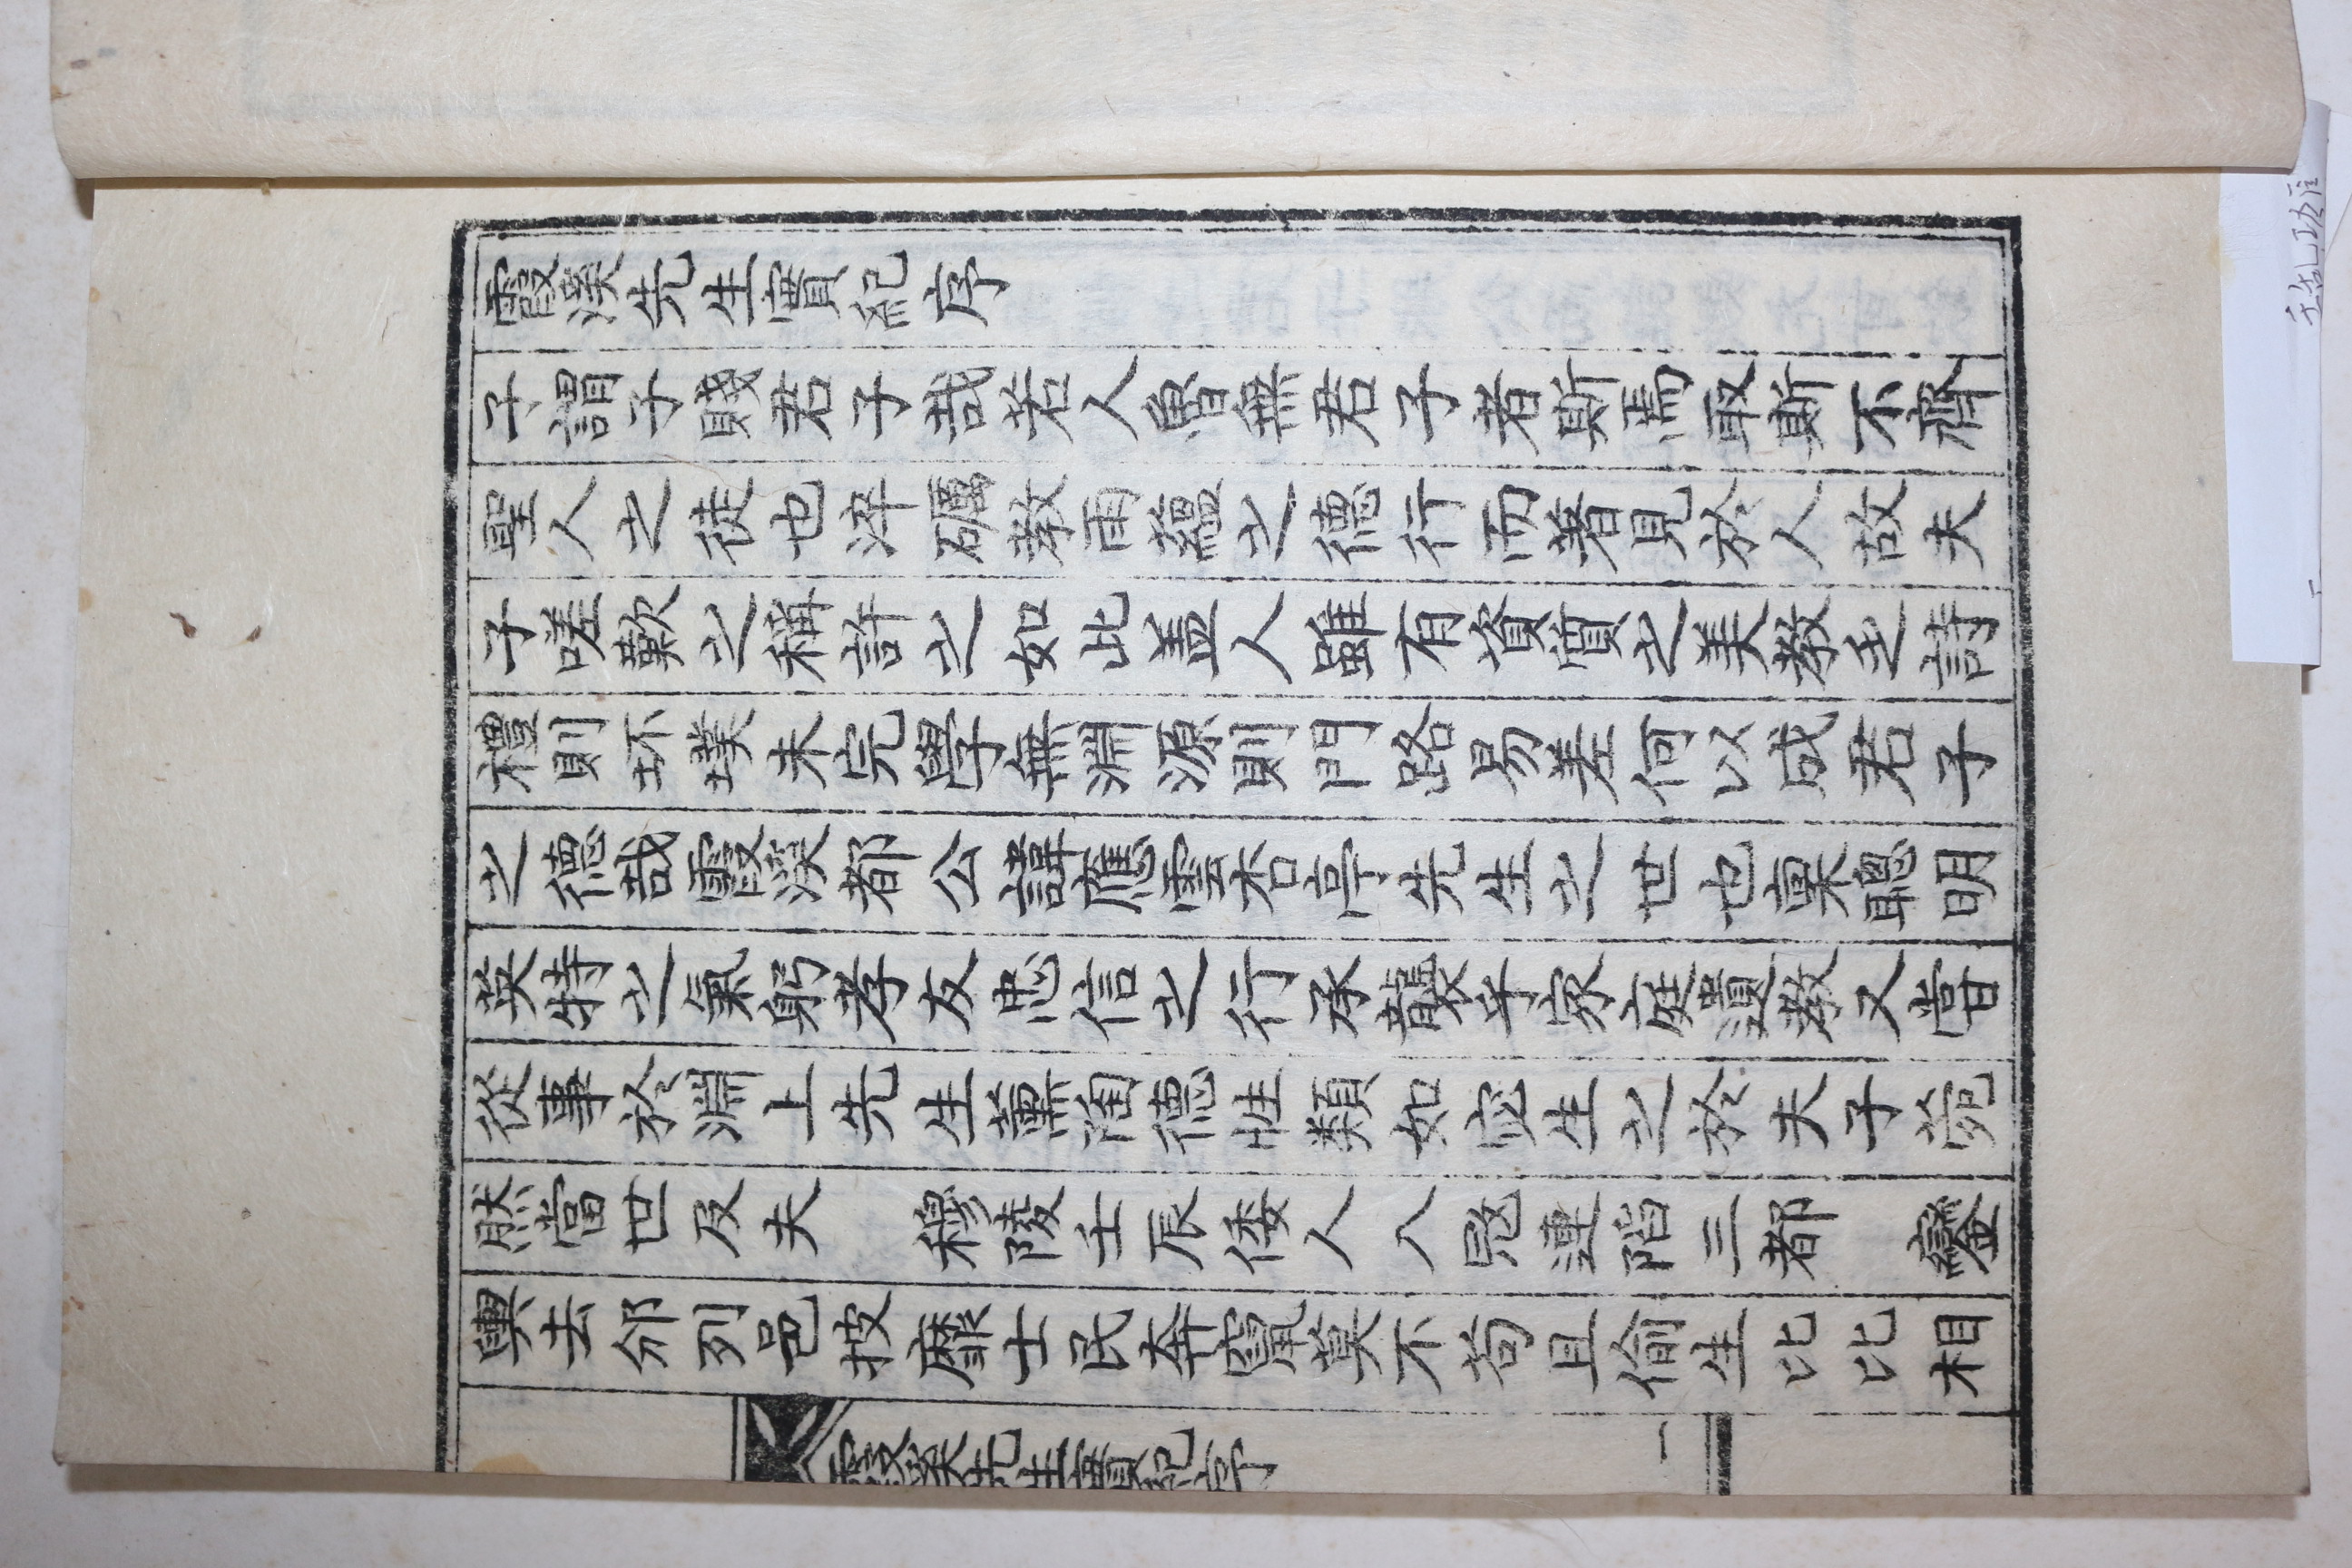 霞溪先生實紀序
子謂子賤君子哉若人魯無君子者斯焉取斯不齊
聖人之徒也淬礪教雨蘊之德行而著見於人故夫
子嗟歎之稱許之如此盖人雖有資質之美教乏詩
禮則坏墣未完學無淵源則門路易差何以成君子
之德哉霞溪都公諱應雲杏亭先生之世也稟聰明
英特之氣躬孝友忠信之行承襲乎家庭遺教又嘗
從事於淵上先生薰陶德性類如宓生之於夫子菀
然當世及夫　穆陵壬辰倭人八宼連陷三都　鑾
輿去邠列邑披靡士民奔竄莫不苟且偷生比比相
霞溪先生實紀序
一
壬乱功臣